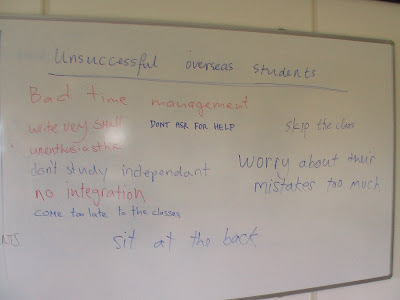 Unsuccessful overseas students
Bad time management
write very small
DONT ASK FOR HELP
skip the class
unenthusiastic
don't study independant
worry about their
mistakes too much
no integration
COME too late to the classes
NTS
sit at the back